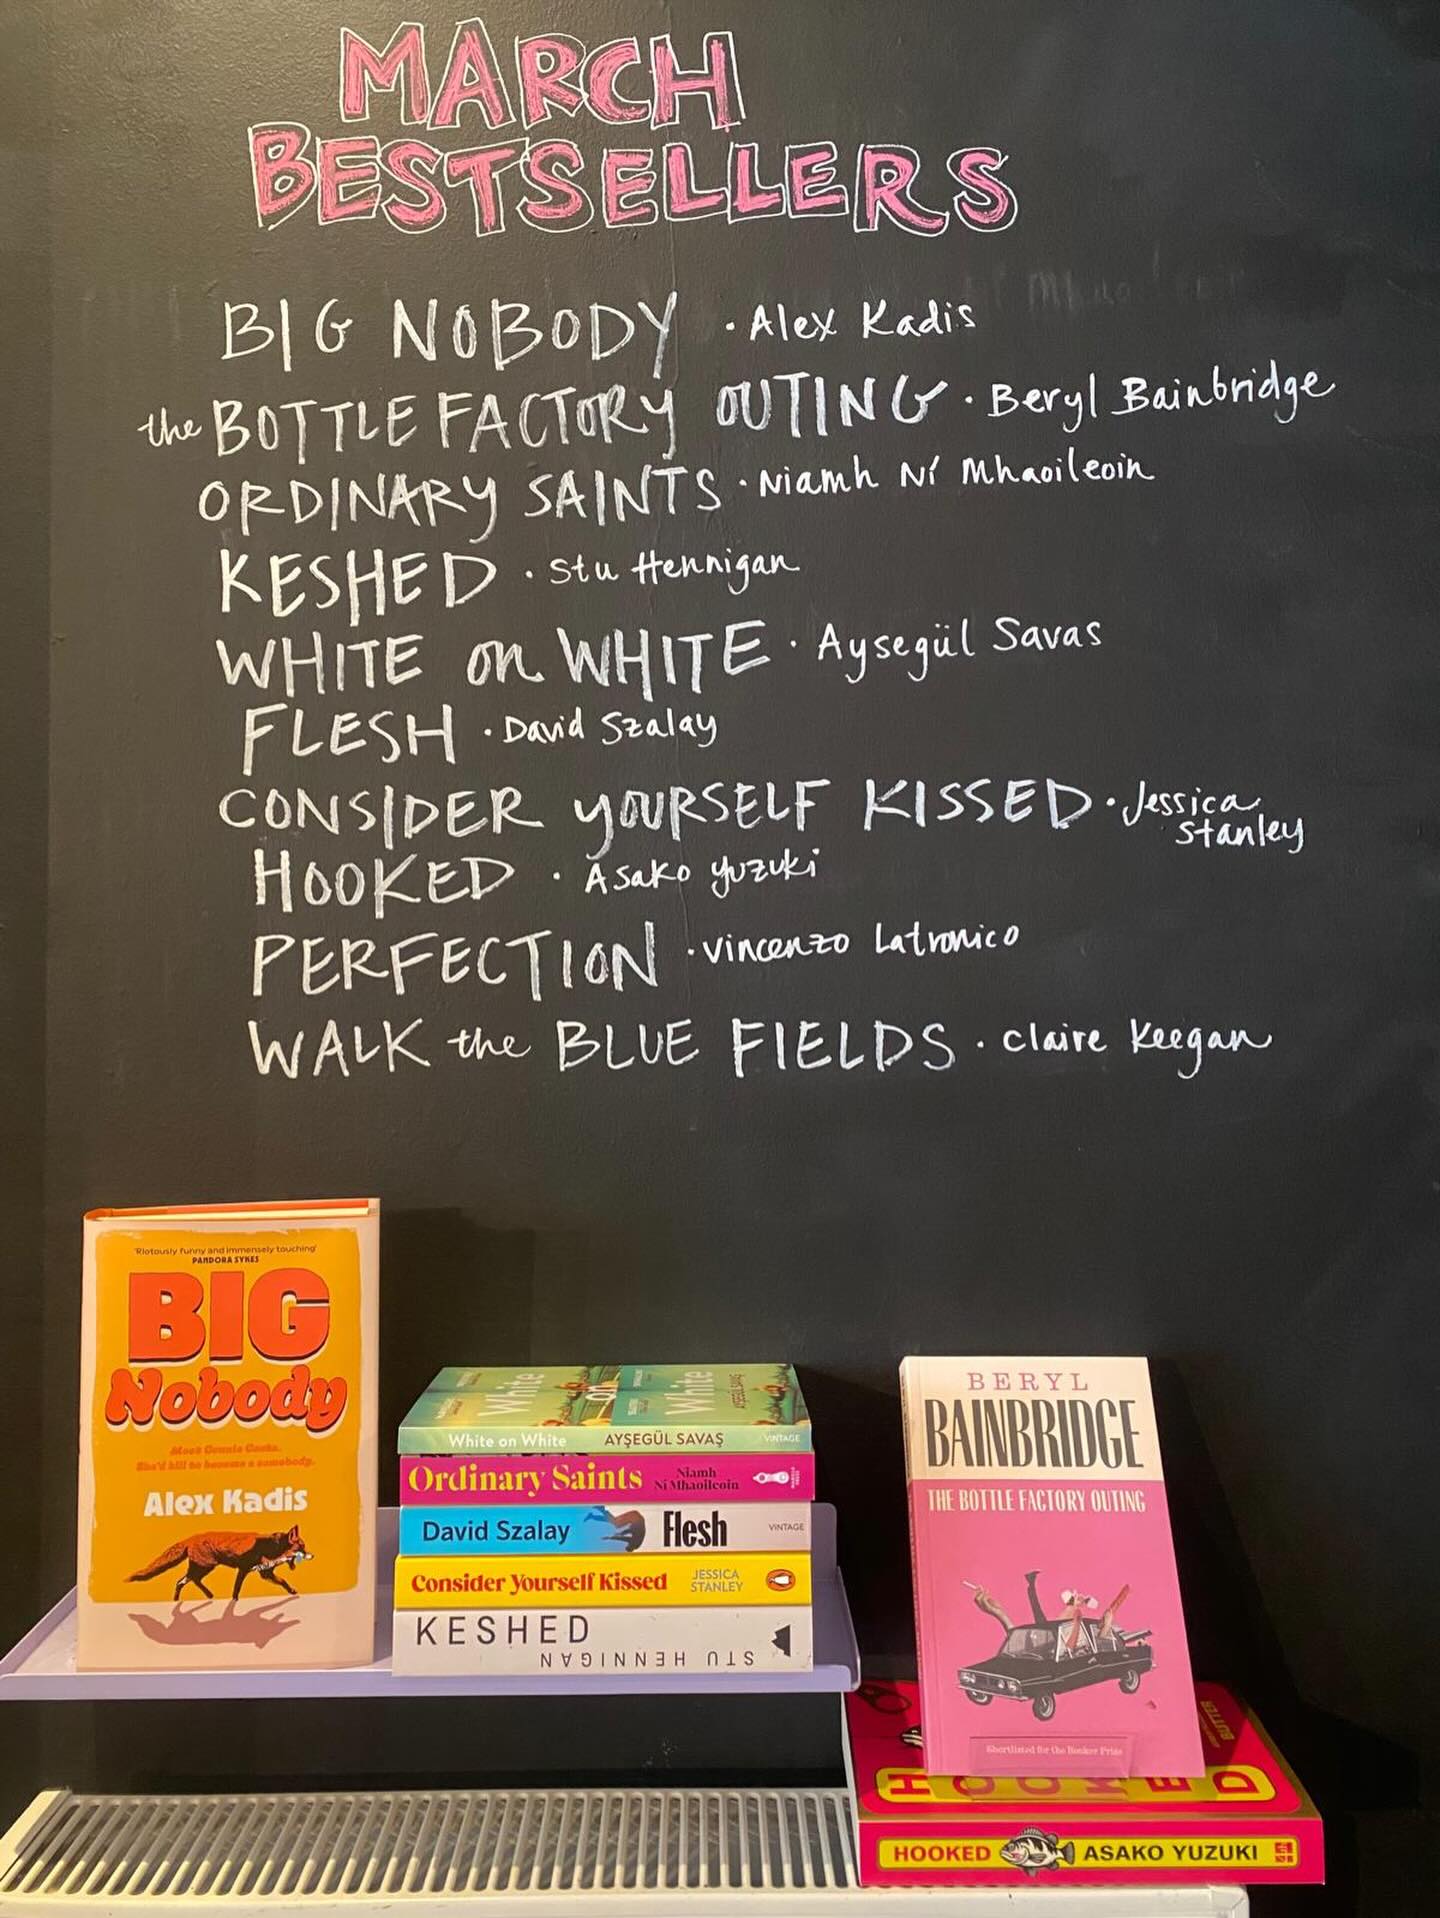 MARCH
BESTSELLERS
BIG NOBODY · Alex Kadis
the BOTTLE FACTORY OUTING · Beryl Bainbridge
ORDINARY SAINTS · Niamh Ní Mhaoileoin
KESHED · Stu Hennigan
WHITE on WHITE · Aysegül Savas
FLESH · David Szalay
CONSIDER YOURSELF KISSED · Jessica
Stanley
HOOKED · Asako Yuzuki
PERFECTION · Vincenzo Latronico
WALK the BLUE FIELDS · Claire Keegan
'Riotously funny and immensely touching'
PANDORA SYKES
BIG
Nobody
Meet Connie Costa.
She'd kill to become a somebody.
Alex Kadis
White on White
White on White AYŞEGÜL SAVAŞ VINTAGE
Ordinary Saints Niamh
Ní Mhaoileoin
David Szalay Flesh VINTAGE
Consider Yourself Kissed JESSICA
STANLEY
KESHED
STU HENNIGAN
BERYL
BAINBRIDGE
THE BOTTLE FACTORY OUTING
Shortlisted for the Booker Prize
BUTTER
HOOKED
HOOKED ASAKO YUZUKI